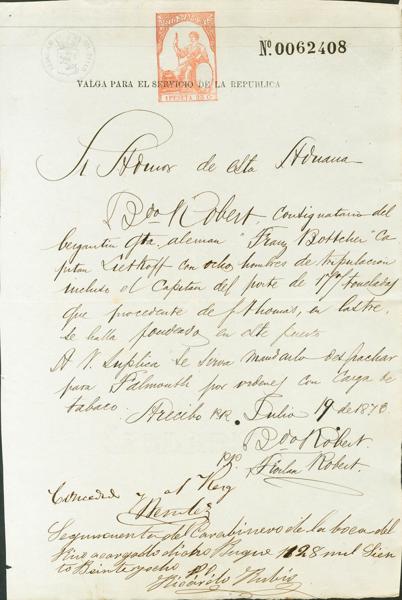 Nº 0062408
VALGA PARA EL SERVICIO DE LA REPUBLICA
Sr Admor de esta Aduana
Bdo Robert. Consignatario del
bergantin Gta. aleman "Franz Bottcher" Ca
pitan Lietkoff con ocho hombres de tripulacion
incluso el Capitan del porte de toneladas
que procedente de St Thomas, en lastre,
se halla fondeado, en este puerto
A V. Suplica se sirva mandarlo despachar
para Falmouth por ordenes con Carga de
tabaco. Arecibo P.R. Julio 19 de 1873.
Bdo Robert.
pp. Robert.
Conceded y al
de Carabineros de la boca del
dicho Buque 1128 mil Cien
to Beinte y ocho
Ricardo Rubio